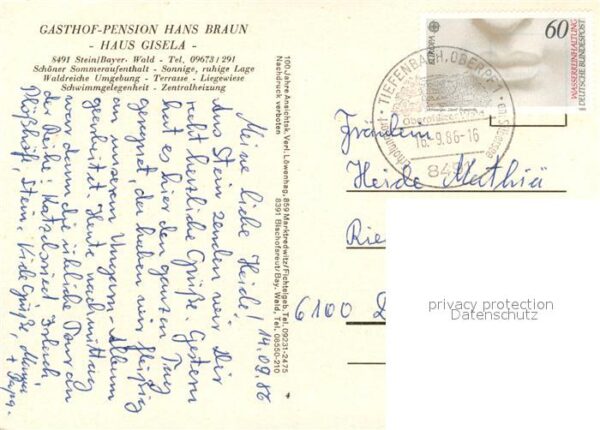 GASTHOF-PENSION HANS BRAUN
- HAUS GISELA -
8491 Stein/Bayer- Wald - Tel. 09673/291
Schöner Sommeraufenthalt - Sonnige, ruhige Lage
Waldreiche Umgebung - Terrasse - Liegewiese
Schwimmgelegenheit - Zentralheizung
Meine liebe Heide! 14.09.86
Aus Stein senden wir Dir
recht herzliche Grüße. Gestern
hat es hier den ganzen Tag
geregnet, da haben wir fleißig
an unserem Ungarn Album
gearbeitet. Heute nachmittag
war dann die übliche Tour an
der Reihe: Kötzlmühle,
Stein. Viele Grüße, Mama
+ Papa.
100 Jahre Ansichtsk. Verl. Löwenhag, 859 Marktredwitz/Fichtelgeb, Tel. 09231-2475
Nachdruck verboten
8391 Bischofsreut/Bay. Wald, Tel. 08550-210
EUROPA
60
WASSERREINHALTUNG
DEUTSCHE BUNDESPOST
TIEFENBACH, OBERPF
Erholungsort
16.-9.86-16
845
Fräulein
Heide Mathiä
Rie
6100 D
privacy protection
Datenschutz